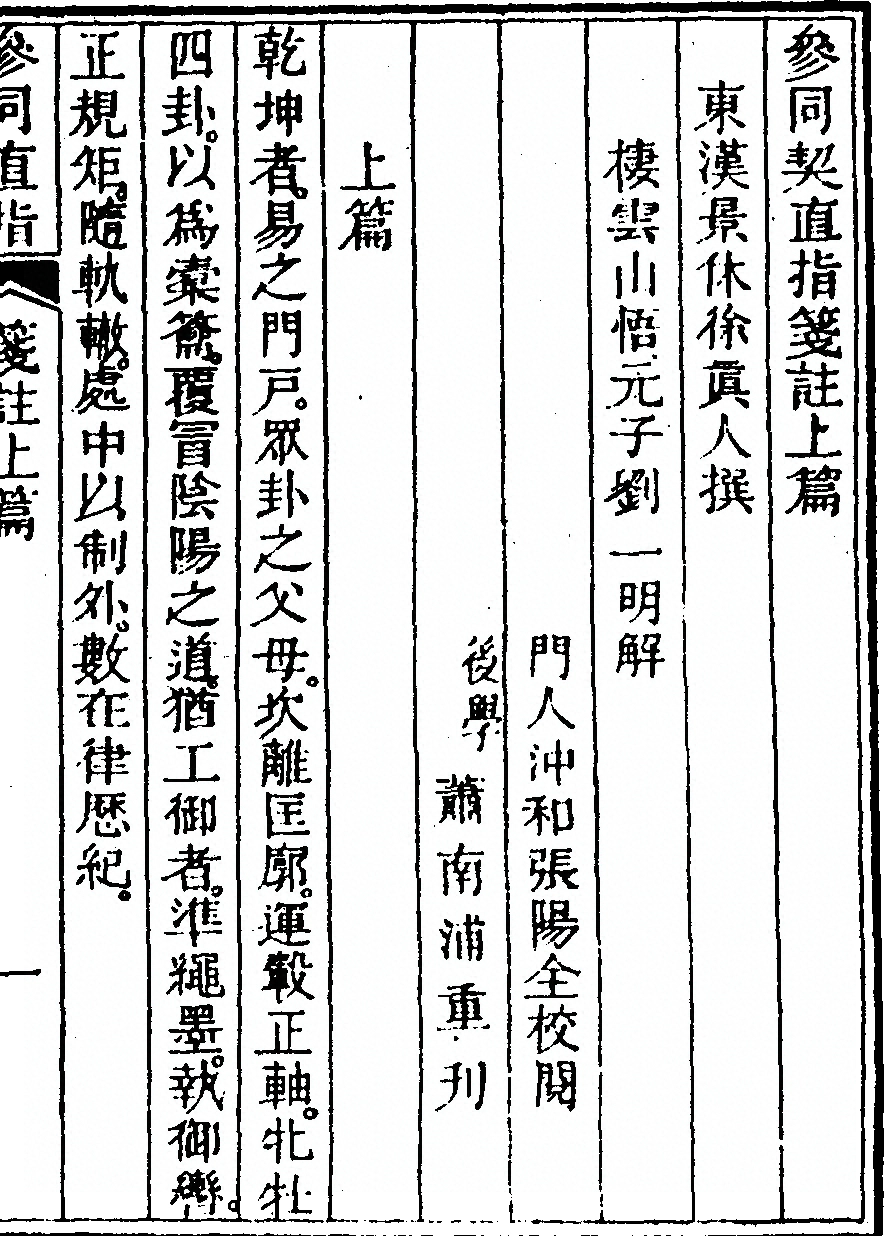 參同契直指箋註上篇
東漢景休徐眞人撰
棲雲山悟元子劉一明解
門人沖和張陽全校閱
後學蕭南浦重刊
上篇
乾坤者。易之門戸。眾卦之父母。坎離匡廓。運轂正軸。牝牡
四卦。以爲橐籥。覆冒陰陽之道。猶工御者。準繩墨。執御轡。
正規矩。隨軌轍。處中以制外。數在律歷紀。
參同直指
箋註上篇
一